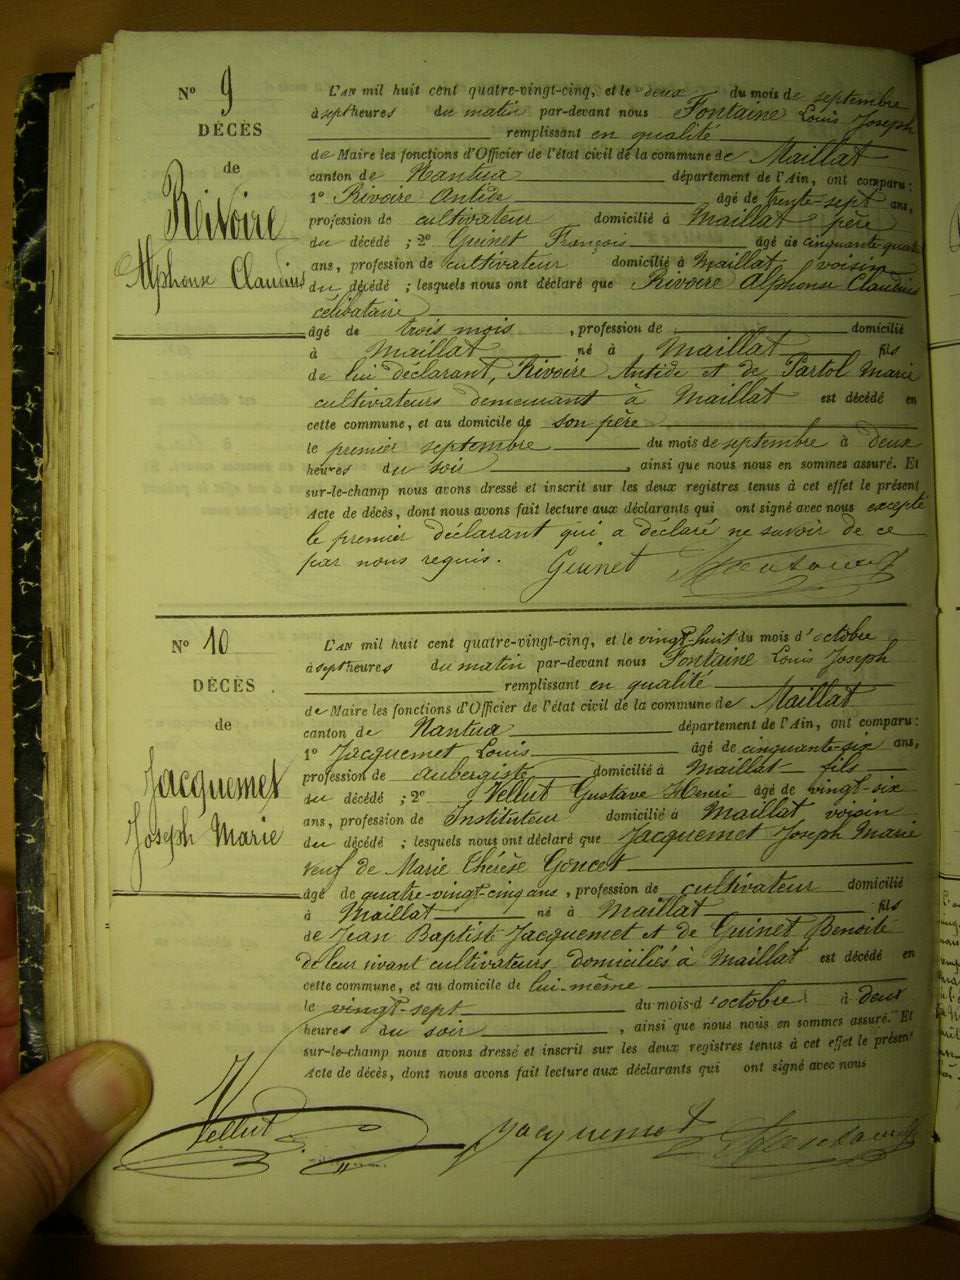 N° 9
DÉCÈS
de
Rivoire
Alphonse Claudius
L'AN mil huit cent quatre-vingt-cinq, et le deux du mois de septembre
à sept heures du matin par-devant nous Fontaine Louis Joseph
remplissant en qualité
de Maire les fonctions d'Officier de l'état civil de la commune de Maillat
canton de Nantua département de l'Ain, ont comparu :
1° Rivoire Antide âgé de trente-sept ans,
profession de cultivateur domicilié à Maillat père
du décédé ; 2° Guinet François âgé de cinquante quatre
ans, profession de cultivateur domicilié à Maillat voisin
du décédé ; lesquels nous ont déclaré que Rivoire Alphonse Claudius
célibataire
âgé de trois mois, profession de domicilié
à Maillat né à Maillat fils
de lui déclarant, Rivoire Antide et de Partol Marie
cultivateurs demeurant à Maillat est décédé en
cette commune, et au domicile de son père
le premier septembre du mois de septembre à deux
heures du soir, ainsi que nous nous en sommes assuré. Et
sur-le-champ nous avons dressé et inscrit sur les deux registres tenus à cet effet le présent
Acte de décès, dont nous avons fait lecture aux déclarants qui ont signé avec nous excepté
le premier déclarant qui a déclaré ne savoir de ce
par nous requis. Guinet
N° 10
DÉCÈS
de
Jacquemet
Joseph Marie
L'AN mil huit cent quatre-vingt-cinq, et le vingt-huit du mois d'octobre
à sept heures du matin par-devant nous Fontaine Louis Joseph
remplissant en qualité
de Maire les fonctions d'Officier de l'état civil de la commune de Maillat
canton de Nantua département de l'Ain, ont comparu :
1° Jacquemet Louis âgé de cinquante-six ans,
profession de aubergiste domicilié à Maillat fils
du décédé ; 2° Vellut Gustave Henri âgé de vingt-six
ans, profession de Instituteur domicilié à Maillat voisin
du décédé ; lesquels nous ont déclaré que Jacquemet Joseph Marie
veuf de Marie Thérèse Goncet
âgé de quatre-vingt-cinq ans, profession de cultivateur domicilié
à Maillat né à Maillat fils
de Jean Baptiste Jacquemet et de Guinet Benoite
de leur vivant cultivateurs domiciliés à Maillat est décédé en
cette commune, et au domicile de lui-même
le vingt-sept du mois d'octobre à deux
heures du soir, ainsi que nous nous en sommes assuré. Et
sur-le-champ nous avons dressé et inscrit sur les deux registres tenus à cet effet le présent
Acte de décès, dont nous avons fait lecture aux déclarants qui ont signé avec nous
Vellut Jacquemet